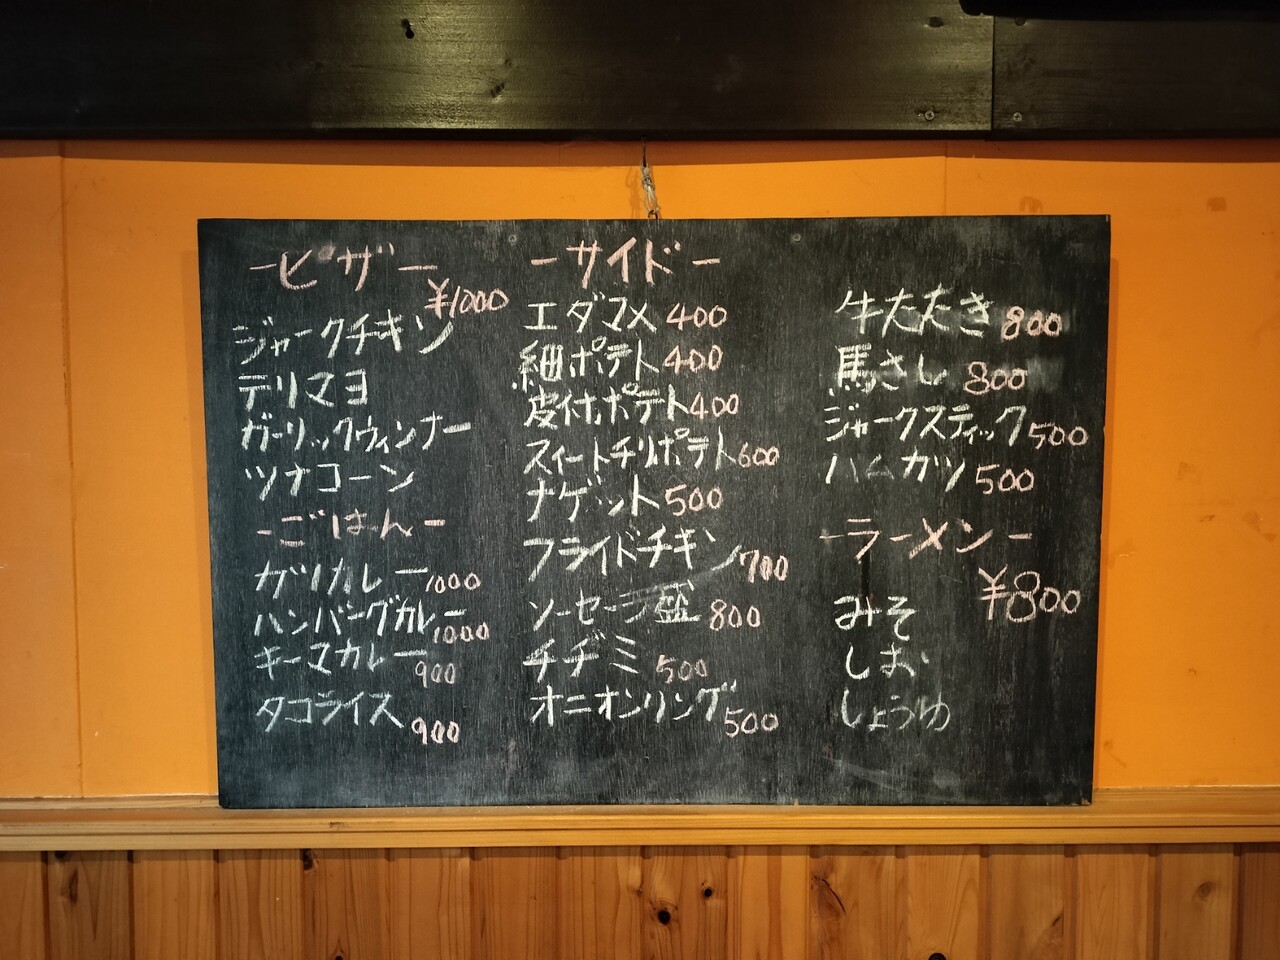 -ピザ-
¥1000
ジャークチキン
テリマヨ
ガーリックウィンナー
ツナコーン
-ごはん-
ガリカレー1000
ハンバーグカレー1000
キーマカレー900
タコライス900
-サイド-
エダマメ400
細ポテト400
皮付ポテト400
スイートチリポテト600
ナゲット500
フライドチキン700
ソーセージ盛800
チヂミ500
オニオンリング500
牛たたき800
馬さし800
ジャークスティック500
ハムカツ500
-ラーメン-
¥800
みそ
しお
しょうゆ